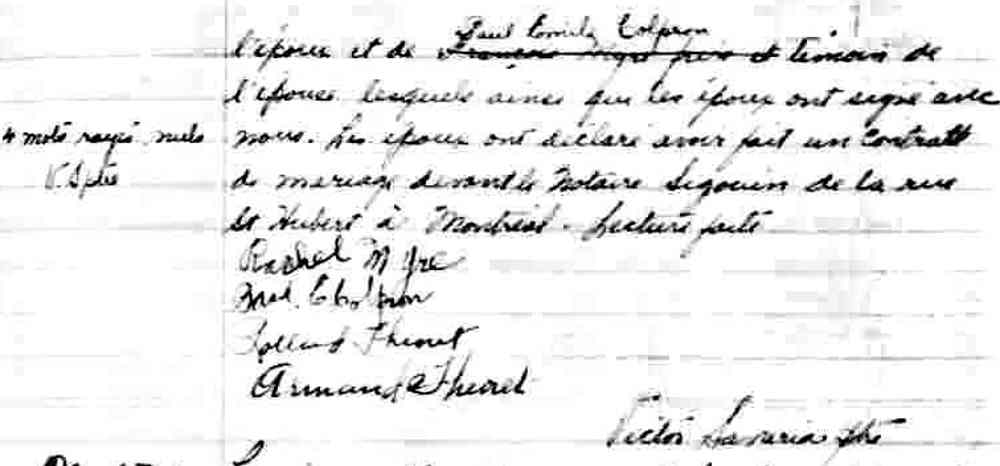 Paul Emile Colpron
l'époux et de François Myre père et témoin de
l'épouse lesquels ainsi que les époux ont signé avec
4 mots rayés nuls nous. Les époux ont déclaré avoir fait un Contratt
de mariage devant le Notaire Sigouin de la rue
St Hubert à Montréal. Lecture faite
Rachel Myre
Colpron
Rolland Theoret
Armand Theoret
Victor Savaria ptre